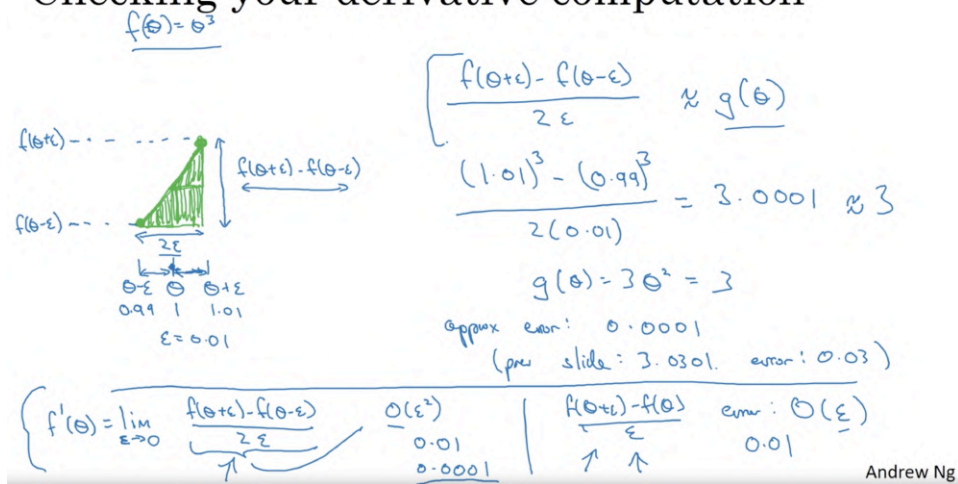 Checking your derivative computation
f(θ) = θ³
f(θ+ε) - f(θ-ε) / 2ε ≈ g(θ)
f(θ+ε)
f(θ+ε) - f(θ-ε)
(1.01)³ - (0.99)³ / 2(0.01) = 3.0001 ≈ 3
f(θ-ε)
2ε
θ-ε θ θ+ε
0.99 1 1.01
ε = 0.01
g(θ) = 3θ² = 3
approx error: 0.0001
(prev slide: 3.0301. error: 0.03)
f'(θ) = lim ε→0 f(θ+ε) - f(θ-ε) / 2ε O(ε²)
0.01
0.0001
f(θ+ε) - f(θ) / ε error: O(ε)
0.01
Andrew Ng